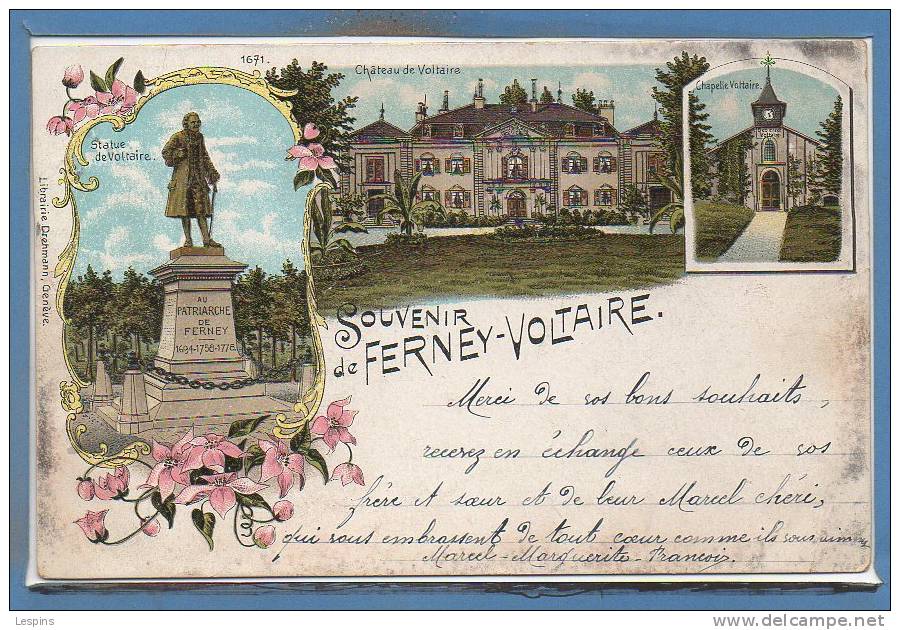 1671.
Château de Voltaire
Chapelle Voltaire.
Statue
de Voltaire.
Librairie Drehmann, Genève.
AU
PATRIARCHE
DE
FERNEY
1694-1758-1778
SOUVENIR
de FERNEY-VOLTAIRE.
Merci de vos bons souhaits,
recevez en échange ceux de vos
frère et sœur et de leur Marcel chéri,
qui vous embrassent de tout cœur comme ils vous aiment
Marcel-Marguerite-Francois.
Lespins
www.delcampe.net